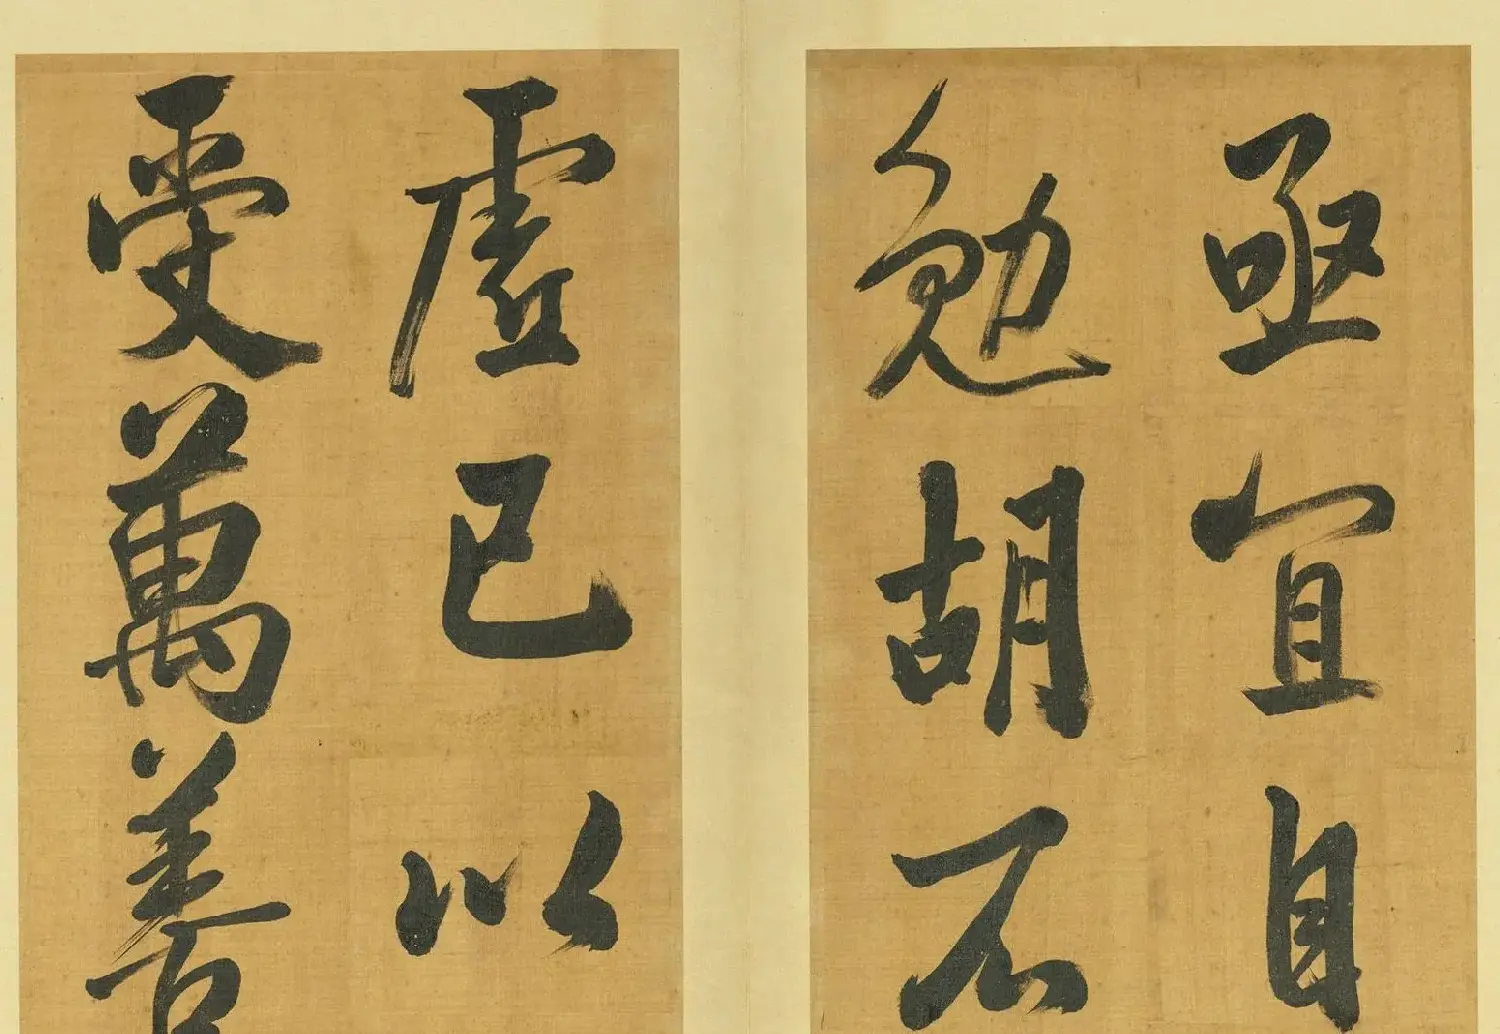 亟宜自
勉胡不
虛己以
受萬善